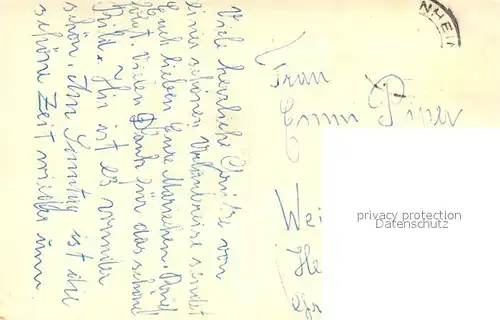 Viele herzliche Grüße von
einer schönen Urlaubsreise sendet
Euch lieben Eure Mariechen.
Vielen Dank für das schöne
Bild. Hier ist es wunder
schön. Am Sonntag ist die
schöne Zeit wieder um
Frau
Emmi
Wei
He
NHEIM
privacy protection
www.oldthing.de